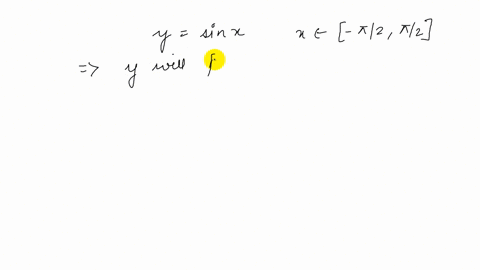 y = sin x x ∈ [-π/2, π/2]
=> y will